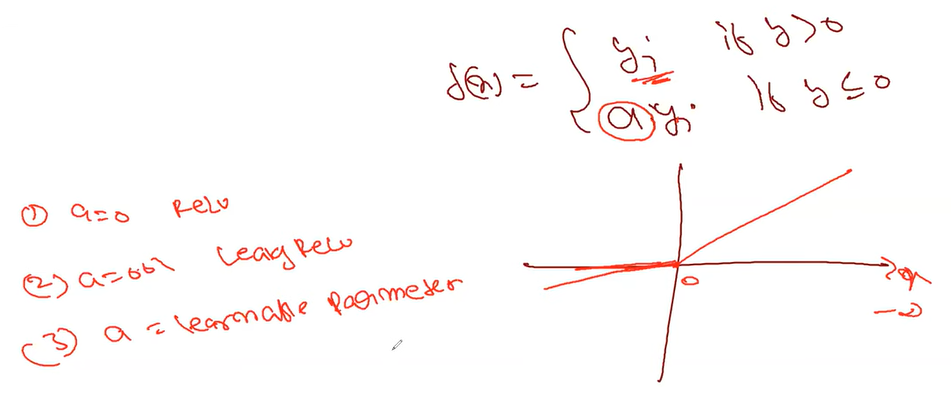 f(x) = { yi if y > 0
a yi if y ≤ 0
① a=0 ReLU
(2) a=0.01 Leaky ReLU
(3) a = learnable Parimeter
0